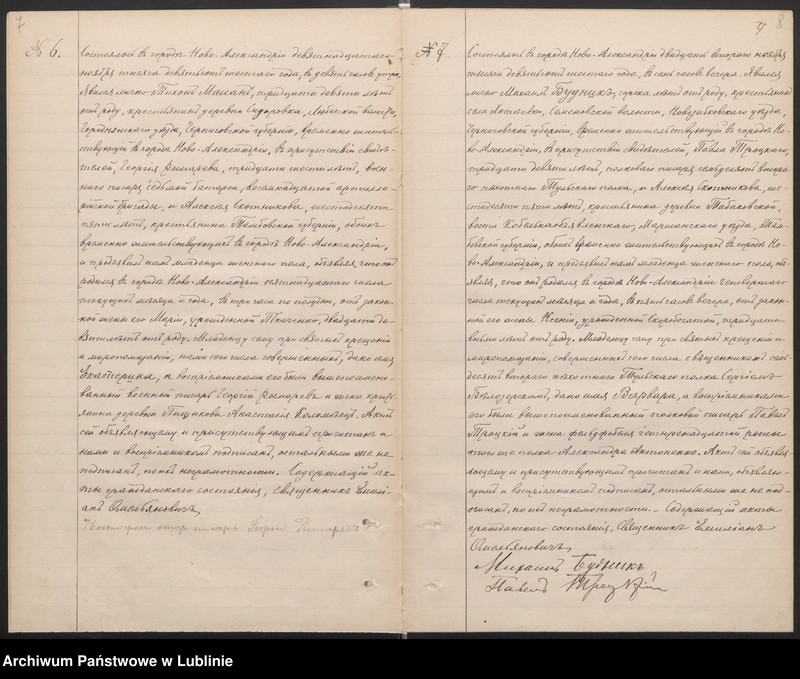 7
№ 6.
Состоялось въ городѣ Ново-Александріи девятнадцатаго
ноября тысяча девятьсотъ шестаго года, въ девять часовъ утра.
Явился лично Тихонъ Масанъ, тридцати девяти лѣтъ
отъ роду, крестьянинъ деревни Сидоровка, Любечской волости,
Городнянскаго уѣзда, Черниговской губерніи, временно житель-
ствующій въ городѣ Ново-Александріи, въ присутствіи свидѣ-
телей, Георгія Рымарева, тридцати шести лѣтъ, воен-
наго писаря седьмой батареи, восемнадцатой артилле-
рійской бригады, и Алексѣя Охотникова, шестидесяти
пяти лѣтъ, крестьянина Тамбовской губерніи, обоихъ
временно жительствующихъ въ городѣ Ново-Александріи,
и предъявилъ намъ младенца женскаго пола, объявляя, что онъ
родился въ городѣ Ново-Александріи пятнадцатаго числа
текущаго мѣсяца и года, въ три часа по полудни, отъ закон-
ной жены его Маріи, урожденной Ткаченко, двадцати де-
вяти лѣтъ отъ роду. Младенцу сему при святомъ крещеніи
и миропомазаніи, нами сего числа совершенномъ, дано имя
Екатерина, а воспріемниками его были вышепоимено-
ванный военный писарь Георгій Рымаревъ и жена кресть-
янина деревни Анастасія Коломіецъ. Актъ
сей объявляющему и присутствующимъ прочитанъ и
нами и воспріемникомъ подписанъ, остальными же не
подписанъ, по ихъ неграмотности. Содержащій ак-
ты гражданскаго состоянія, Священникъ Емилі-
анъ Омельяновичъ
писарь Георгій Рымаревъ
8
№ 7.
Состоялось въ городѣ Ново-Александріи двадцать втораго ноября
тысяча девятьсотъ шестаго года, въ семь часовъ вечера. Явился
лично Михаилъ Будникъ, сорока лѣтъ отъ роду, крестьянинъ
села Хотѣевки, Семеновской волости, Новозыбковскаго уѣзда,
Черниговской губерніи, временно жительствующій въ городѣ Но-
во-Александріи, въ присутствіи свидѣтелей, Павла Троцкаго,
тридцати девяти лѣтъ, полковаго писаря семьдесятъ втора-
го пѣхотнаго Тульскаго полка, и Алексѣя Охотникова, ше-
стидесяти пяти лѣтъ, крестьянина деревни
уѣзда, Там-
бовской губерніи, обоихъ временно жительствующихъ въ городѣ Но-
во-Александріи, и предъявилъ намъ младенца женскаго пола, объ-
являя, что онъ родился въ городѣ Ново-Александріи четвертаго
числа текущаго мѣсяца и года, въ пять часовъ вечера, отъ закон-
ной его жены Ксеніи, урожденной Скоробогатой, тридцати
восьми лѣтъ отъ роду. Младенцу сему при святомъ крещеніи и
миропомазаніи, совершенномъ сего числа священникомъ семь-
десятъ втораго пѣхотнаго Тульскаго полка Сергіемъ
Бѣлозерскимъ, дано имя Варвара, а воспріемниками
его были вышепоименованный полковой писарь Павелъ
Троцкій и жена фельдфебеля четырнадцатой роты
того же полка Александра Антоненко. Актъ сей объявля-
ющему и присутствующимъ прочитанъ и нами, объявляю-
щимъ и воспріемникомъ подписанъ, остальными же не под-
писанъ, по ихъ неграмотности. Содержащій акты
гражданскаго состоянія, Священникъ Емиліанъ
Омельяновичъ
Михаилъ Будникъ
Павелъ Троцкій
Archiwum Państwowe w Lublinie